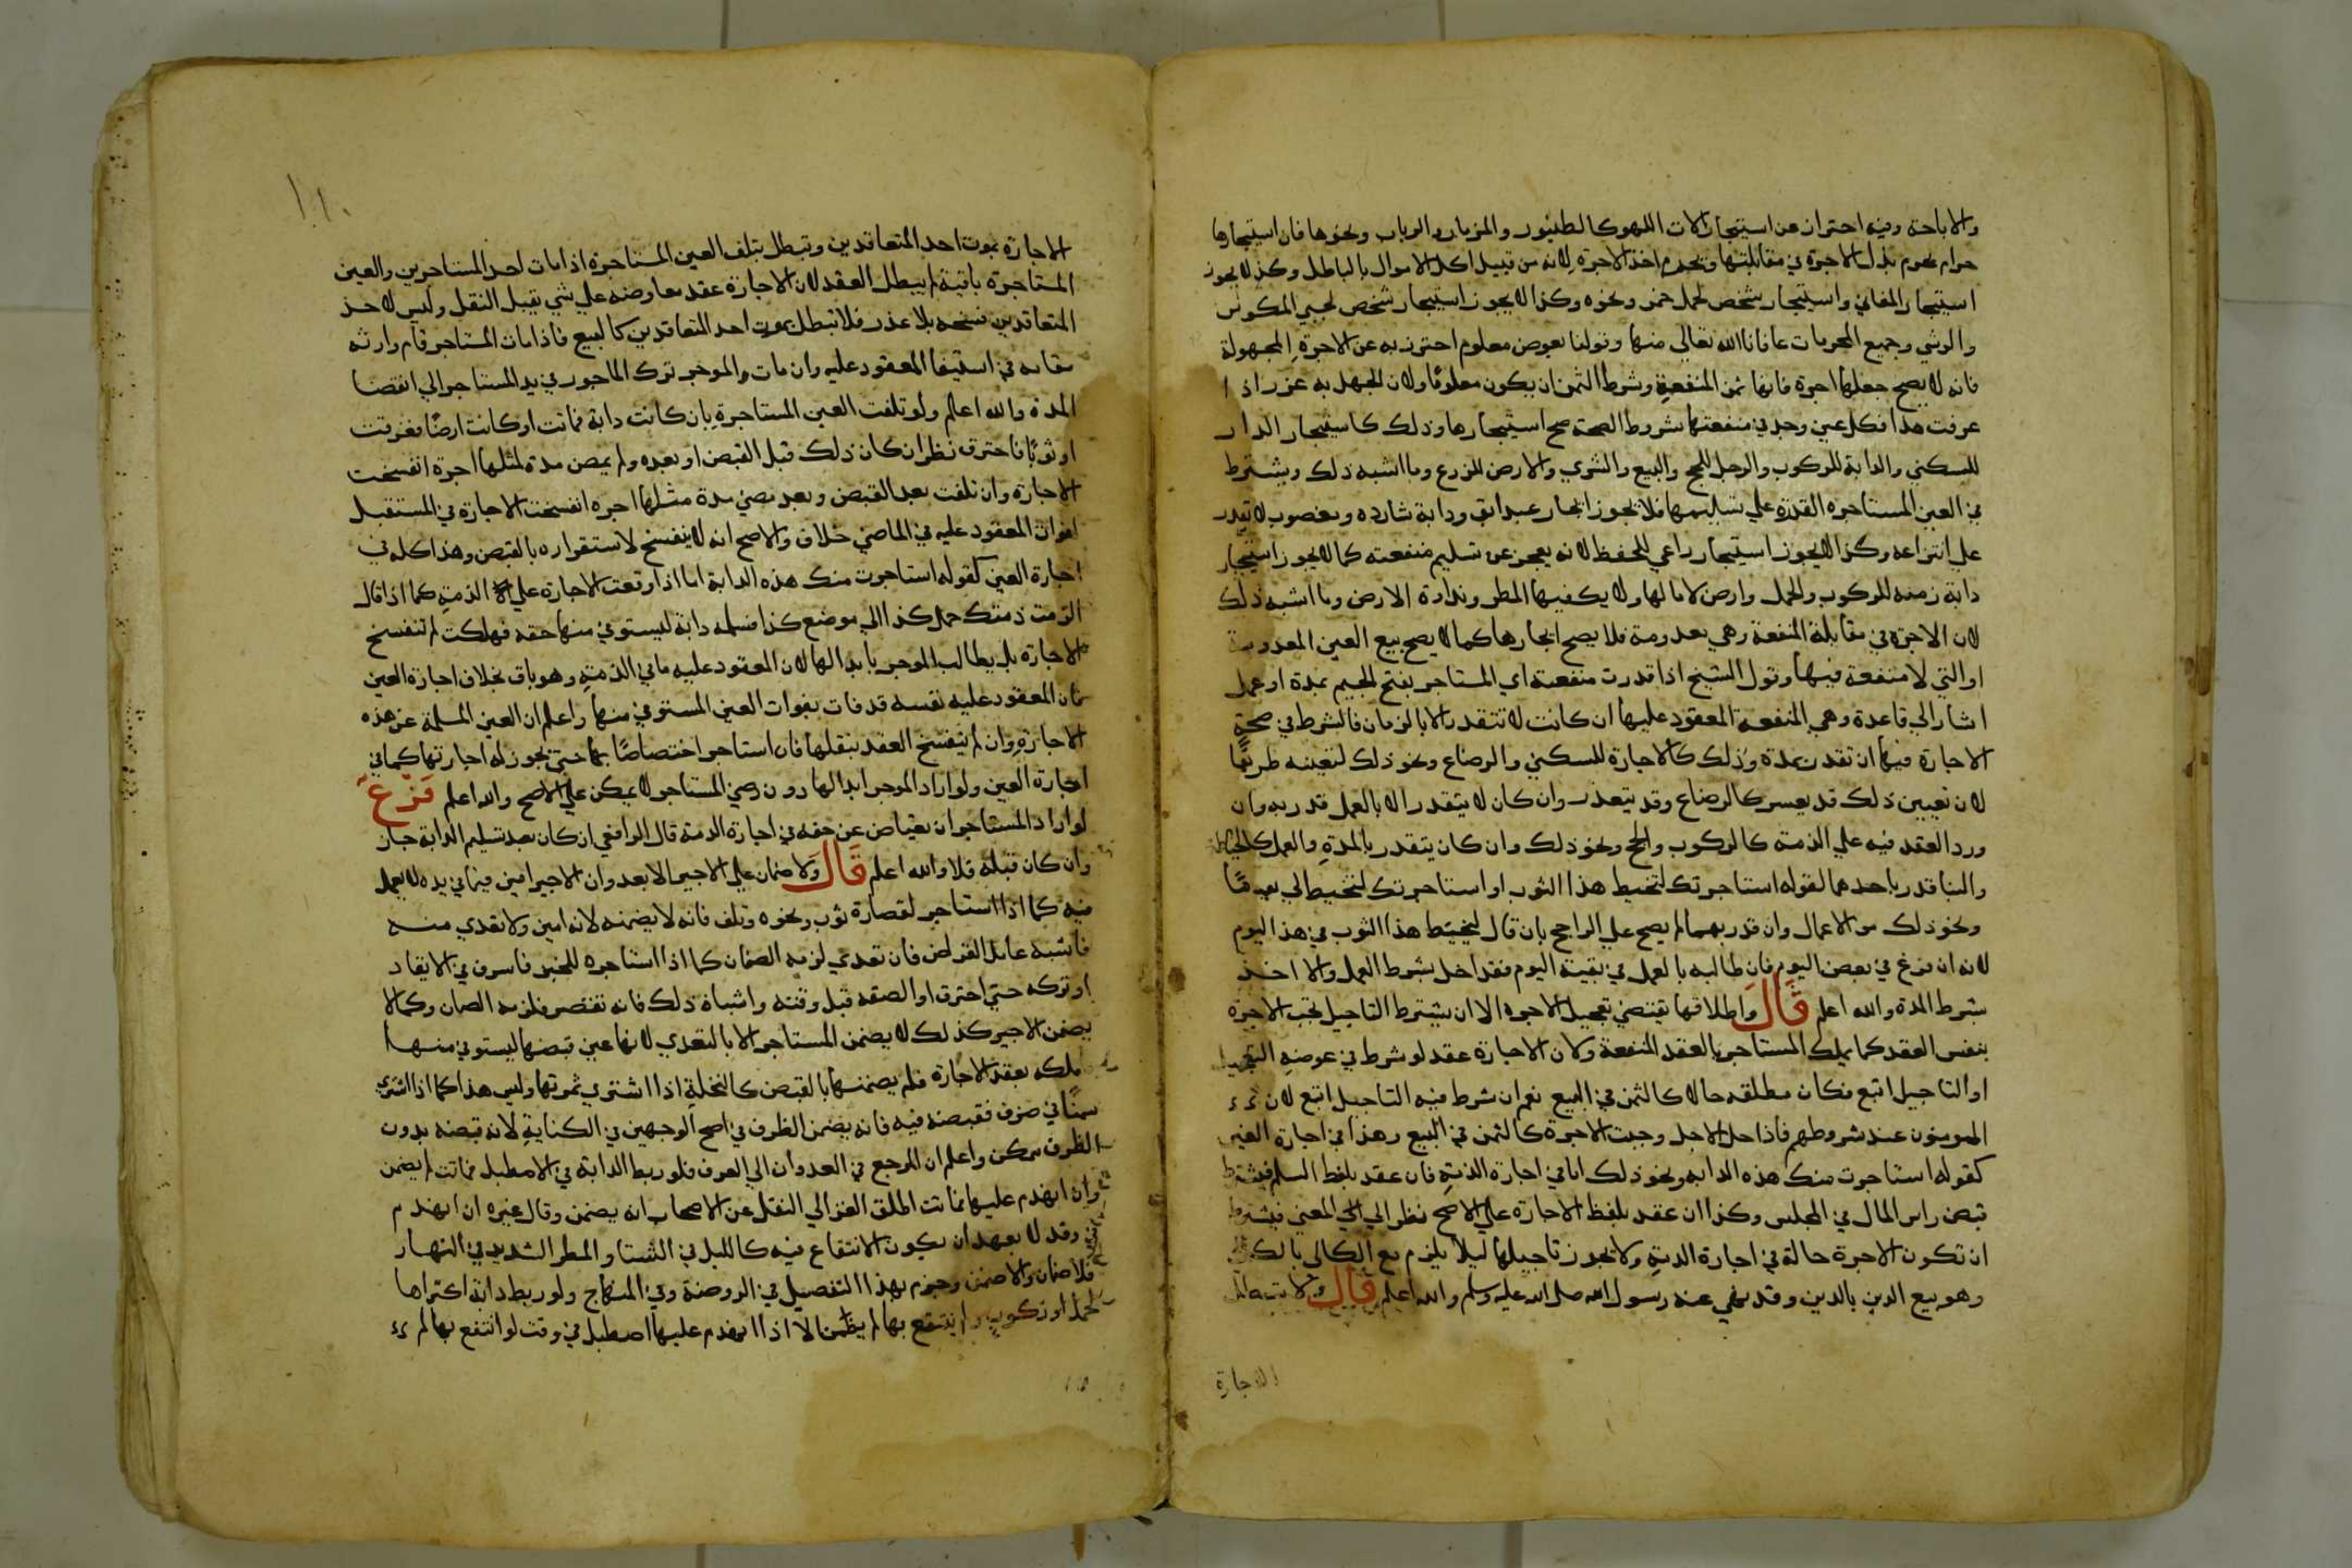 والاباحة وفيه احتراز من استيجار الات اللهو كالطنبور والمزمار والرباب ونحوها فان استيجارها
حرام يحرم بذل الاجرة في مقابلتها ويحرم اخذ الاجرة لانه من قبيل اكل الاموال بالباطل وكذا لا يجوز
استيجار المغاني واستيجار شخص لحمل خمر ونحوه وكذا لا يجوز استيجار شخص لجبي المكوس
والرشي وجميع المحرمات عافانا الله تعالى منها وقولنا بعوض معلوم احترز به عن الاجرة المجهولة
فانه لا يصح جعلها اجرة فانها ثمن المنفعة وشرط الثمن ان يكون معلوما ولان الجهل به غرر اذا
عرفت هذا فكل عين وجد في منفعتها شروط الصحة صح استيجارها وذلك كاستيجار الدار
للسكني والدابة للركوب والرجل للحج والبيع والشري والارض للزرع وما اشبه ذلك ويشترط
في العين المستاجره القدرة علي تسليمها فلا يجوز ايجار عبد ابق ودابة شارده ومغصوب لا يقدر
علي انتزاعه وكذا لا يجوز استيجار راعي للحفظ لانه يعجز عن تسليم منفعته كما لا يجوز استيجار
دابة زمنه للركوب والحمل وارض لا ما لها ولا يكفيها المطر ونداوة الارض وما اشبه ذلك
لان الاجرة في مقابلة المنفعة وهي معدومة فلا يصح ايجارها كما لا يصح بيع العين المعدومة
او التي لا منفعة فيها وقول الشيخ اذا قدرت منفعته اي المستاجر بفتح الجيم بمدة او عمل
اشار الي قاعدة وهي المنفعة المعقود عليها ان كانت لا تتقدر الا بالزمان فالشرط في صحة
الاجارة فيها ان تقدر بمدة وذلك كالاجارة للسكني والرضاع ونحو ذلك لتعينه طريقا
لان تعيين ذلك قد يعسر كالرضاع وقد يتعذر وان كان لا يتقدر الا بالعمل قدر به وان
ورد العقد فيه علي الذمة كالركوب والحج ونحو ذلك وان كان يتقدر بالمدة والعمل كالخياطة
والبنا قدر باحدهما لقوله استاجرتك لتخيط هذا الثوب او استاجرتك لتخيط لي يوما
ونحو ذلك من الاعمال وان قدر بهما لم يصح علي الراجح بان قال لتخيط هذا الثوب في هذا اليوم
لانه ان فرغ في بعض اليوم فان طالبه بالعمل في بقية اليوم فقد اخل بشرط العمل والا اخل
بشرط المدة والله اعلم قال واطلاقها يقتضي تعجيل الاجره الا ان يشترط التاجيل تجب الاجرة
بنفس العقد كما يملك المستاجر بالعقد المنفعة ولان الاجارة عقد لو شرط في عوضه التعجيل
او التاجيل اتبع فكان مطلقه حالا كالثمن في البيع نعم ان شرط فيه التاجيل اتبع لان
المومنون عند شروطهم فاذا حل الاجل وجبت الاجرة كالثمن في البيع وهذا في اجارة العين
كقوله استاجرت منك هذه الدابه ونحو ذلك اما في اجارة الذمة فان عقد بلفظ السلم فيشترط
قبض راس المال في المجلس وكذا ان عقد بلفظ الاجارة علي الاصح نظرا الي المعني فيشترط
ان تكون الاجرة حالة في اجارة الذمة ولا يجوز تاجيلها ليلا يلزم بيع الكالي بالكالي
وهو بيع الدين بالدين وقد نهي عنه رسول الله صلى الله عليه وسلم والله اعلم قال ولا تبطل
الاجارة
١١٠
الاجارة بموت احد المتعاقدين وتبطل بتلف العين المستاجرة اذا مات احد المستاجرين والعين
المستاجرة باقية لم يبطل العقد لان الاجارة عقد معاوضه علي شي يقبل النقل وليس لاحد
المتعاقدين فسخه بلا عذر فلا تبطل بموت احد المتعاقدين كالبيع فاذا مات المستاجر قام وارثه
مقامه في استيفا المعقود عليه وان مات الموجر ترك الماجور في يد المستاجر الي انقضا
المدة والله اعلم ولو تلفت العين المستاجرة بان كانت دابة فماتت او كانت ارضا فغرقت
او ثوبا فاحترق نظر ان كان ذلك قبل القبض او بعده ولم يمض مدة لمثلها اجرة انفسخت
الاجارة وان تلفت بعد القبض وبعد مضي مدة مثلها اجره انفسخت الاجارة في المستقبل
لفوات المعقود عليه في الماضي خلاف والاصح انه لا ينفسخ لاستقراره بالقبض وهذا كله في
اجارة العين كقوله استاجرت منك هذه الدابة اما اذا وقعت الاجارة علي الذمة كما اذا قال
الزمت ذمتك حمل كذا الي موضع كذا فسلمه دابة ليستوفي منها حقه فهلكت لم تنفسخ
الاجارة بل يطالب الموجر بابدالها لان المعقود عليه ما في الذمة وهو باق بخلاف اجارة العين
فان المعقود عليه نفسه قد فات بفوات العين المستوفي منها واعلم ان العين المسلمة عن هذه
الاجارة وان لم ينفسخ العقد بتلفها فان استاجر اختصاصا بها حتي يجوز له اجارتها كما في
اجارة العين ولو اراد الموجر ابدالها دون رضي المستاجر لا يمكن علي الاصح والله اعلم فرع
لو اراد المستاجر ان يعتاض عن حقه في اجارة الذمة قال الرافعي ان كان بعد تسليم الدابة جاز
وان كان قبله فلا والله اعلم قال ولا ضمان علي الاجير الا بعدوان الاجير امين فيما في يده لا يعمل
فيه كما اذا استاجر لقصارة ثوب ونحوه وتلف فانه لا يضمنه لانه امين ولا تعدي منه
فاشبه عامل القراض فان تعدي لزمه الضمان كما اذا استاجره للخبز فاسرف في الايقاد
او تركه حتي احترق او الصقه قبل وقته واشباه ذلك فانه تقصير فلزمه الضمان وكما لا
يضمن الاجير كذلك لا يضمن المستاجر الا بالتعدي لانها عين قبضها ليستوفي منها
ملكه بعقد الاجارة فلم يضمنها بالقبض كالنخلة اذا اشتري ثمرتها وليس هذا كما اذا اشتري
سمنا في ظرف فقبضه فيه فانه يضمن الظرف في اصح الوجهين في الكفاية لانه قبضه بدون
الظرف ممكن واعلم ان المرجع في العدوان الي العرف فلو ربط الدابة في الاصطبل فماتت لم يضمن
وان انهدم عليها فماتت اطلق الغزالي النقل عن الاصحاب انه يضمن وقال غيره ان انهدم
في وقت لا يعهد ان يكون الانتفاع فيه كالليل في الشتا والمطر الشديد في النهار
فلا ضمان والا ضمن وجزم بهذا التفصيل في الروضة وفي المنهاج ولو ربط دابة اكتراها
لحمل او ركوب ولم ينتفع بها لم يضمن الا اذا انهدم عليها اصطبل في وقت لو انتفع بها لم